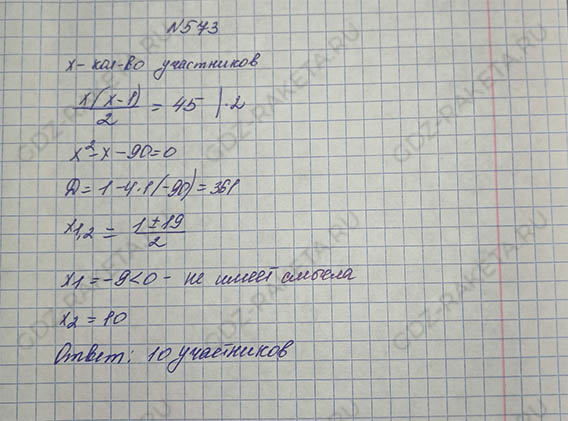 №573
x - кол-во участников
x(x-1)/2 = 45 |·2
x²-x-90=0
D=1-4·1(-90)=361
x1,2 = 1±19/2
x1=-9<0 - не имеет смысла
x2=10
Ответ: 10 участников
GDZ-RAKETA.RU